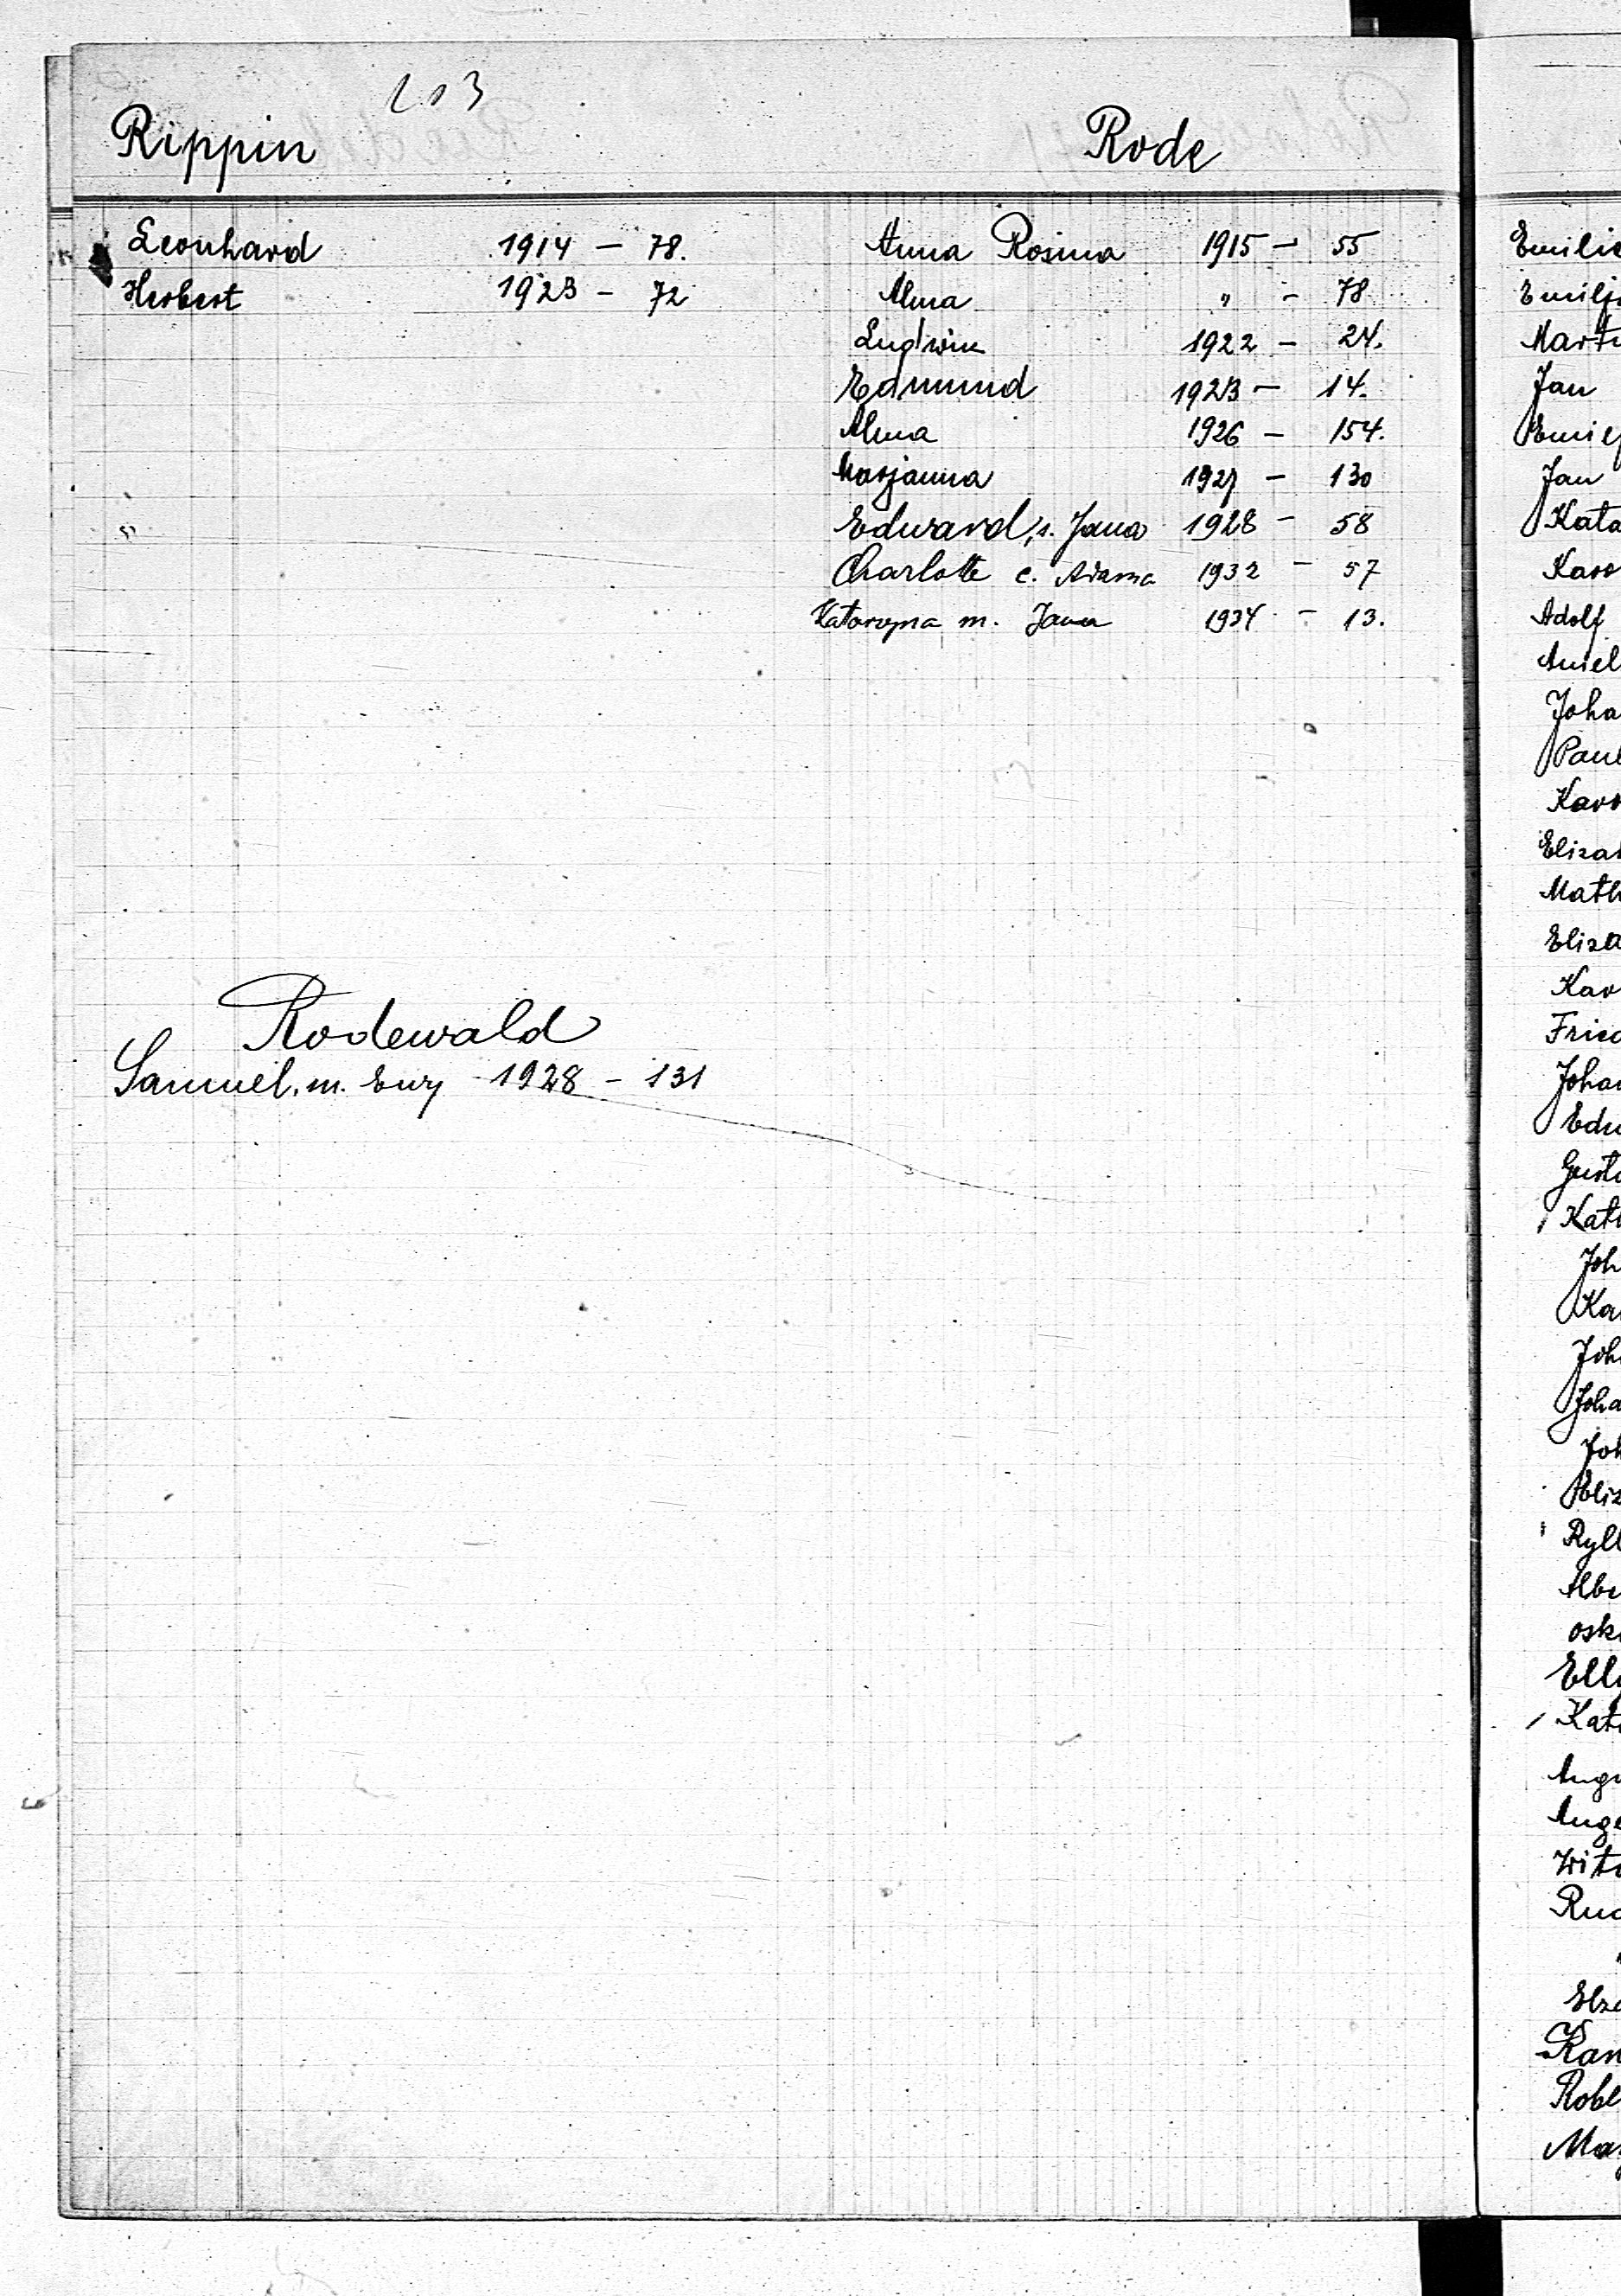 203
Rippin
Leonhard 1914 - 78.
Herbert 1923 - 72
Rodewald
Samuel, m. Ewy 1928 - 131
Rode
Anna Rosina 1915 - 55
Alma " - 78
Ludwin 1922 - 24.
Edmund 1923 - 14.
Alma 1926 - 154.
Marjanna 1927 - 130
Edward, s. Jana 1928 - 58
Charlotte c. Adama 1932 - 57
Katarzyna m. Jana 1934 - 13.
Emilie
Emilj
Mart
Jan
Emilj
Jan
Kata
Karo
Adolf
Aniel
Joha
Paul
Karo
Elizab
Math
Eliza
Kar
Fried
Johan
Edw
Gusta
Kat
Joh
Ka
Joh
Joha
Joh
Eliz
Ryll
Albe
Osk
Elly
Kat
Augu
Auge
Wito
Rud
"
Elza
Kan
Robe
Mar